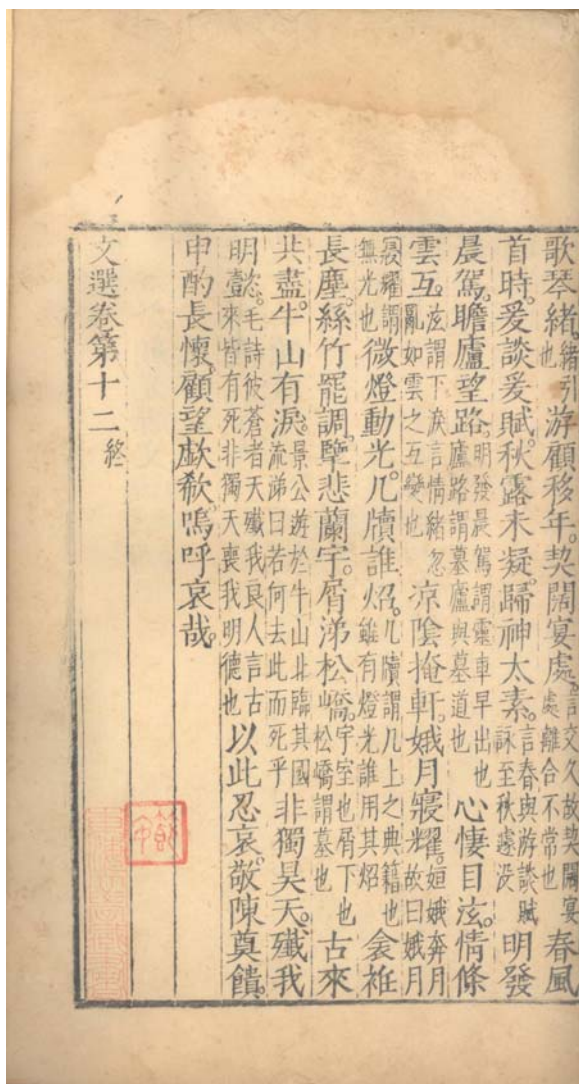 歌琴緒。緒引也游顧移年。契闊宴處。言交久故契闊宴處離合不常也春風
首時。爰談爰賦。秋露未凝。歸神太素。言春與游談賦詠至秋遽没明發
晨駕。瞻廬望路。明發晨駕謂靈車早出也廬路謂墓廬與墓道也心悽目泫。情條
雲互。泫謂下淚言情緒忽亂如雲之互變也凉陰掩軒。娥月寢耀。姮娥奔月故曰娥月
寢耀謂無光也微燈動光。几牘誰炤。几牘謂几上之典籍也雖有燈光誰用其炤衾衽
長塵。絲竹罷調。擥悲蘭宇。屑涕松嶠。宇室也屑下也松嶠謂墓也古來
共盡。牛山有淚。景公遊於牛山北臨其國流涕曰若何去此而死乎非獨昊天。殲我
明懿。毛詩彼蒼者天殲我良人言古來皆有死非獨天喪我明德也以此忍哀。敬陳奠饋。
申酌長懷。顧望歔欷。嗚呼哀哉。
文選卷第十二 終